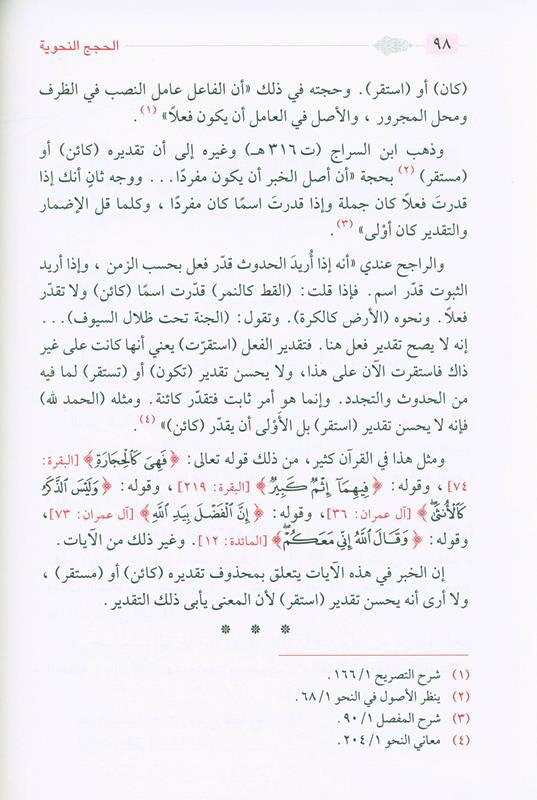 ٩٨
الحجج النحوية
(كان) أو (استقر). وحجته في ذلك «أن الفاعل عامل النصب في الظرف
ومحل المجرور ، والأصل في العامل أن يكون فعلاً» (١).
وذهب ابن السراج (ت ٣١٦هـ) وغيره إلى أن تقديره (كائن) أو
(مستقر) (٢) بحجة «أن أصل الخبر أن يكون مفردًا . . . ووجه ثانٍ أنك إذا
قدرتَ فعلاً كان جملة وإذا قدرتَ اسمًا كان مفردًا ، وكلما قل الإضمار
والتقدير كان أوْلى» (٣).
والراجح عندي «أنه إذا أُريدَ الحدوث قدّر فعل بحسب الزمن ، وإذا أريد
الثبوت قدّر اسم. فإذا قلت: (القط كالنمر) قدّرت اسمًا (كائن) ولا تقدّر
فعلاً. ونحوه (الأرض كالكرة). وتقول: (الجنة تحت ظلال السيوف) . . .
إنه لا يصح تقدير فعل هنا. فتقدير الفعل (استقرّت) يعني أنها كانت على غير
ذاك فاستقرت الآن على هذا، ولا يحسن تقدير (تكون) أو (تستقر) لما فيه
من الحدوث والتجدد. وإنما هو أمر ثابت فتقدّر كائنة. ومثله (الحمد لله)
فإنه لا يحسن تقدير (استقر) بل الأَولى أن يقدّر (كائن)» (٤).
ومثل هذا في القرآن كثير، من ذلك قوله تعالى: ﴿فَهِيَ كَالْحِجَارَةِ﴾ [البقرة:
٧٤] ، وقوله: ﴿فِيهِمَا إِثْمٌ كَبِيرٌ﴾ [البقرة: ٢١٩] ، وقوله: ﴿وَلَيْسَ الذَّكَرُ
كَالْأُنثَىٰ﴾ [آل عمران: ٣٦] ، وقوله: ﴿إِنَّ الْفَضْلَ بِيَدِ اللَّهِ﴾ [آل عمران: ٧٣] ،
وقوله: ﴿وَقَالَ اللَّهُ إِنِّي مَعَكُمْ﴾ [المائدة: ١٢]. وغير ذلك من الآيات.
إن الخبر في هذه الآيات يتعلق بمحذوف تقديره (كائن) أو (مستقر) ،
ولا أرى أنه يحسن تقدير (استقر) لأن المعنى يأبى ذلك التقدير.
* * *
(١) شرح التصريح ١/ ١٦٦ .
(٢) ينظر الأصول في النحو ١/ ٦٨ .
(٣) شرح المفصل ١/ ٩٠ .
(٤) معاني النحو ١/ ٢٠٤ .